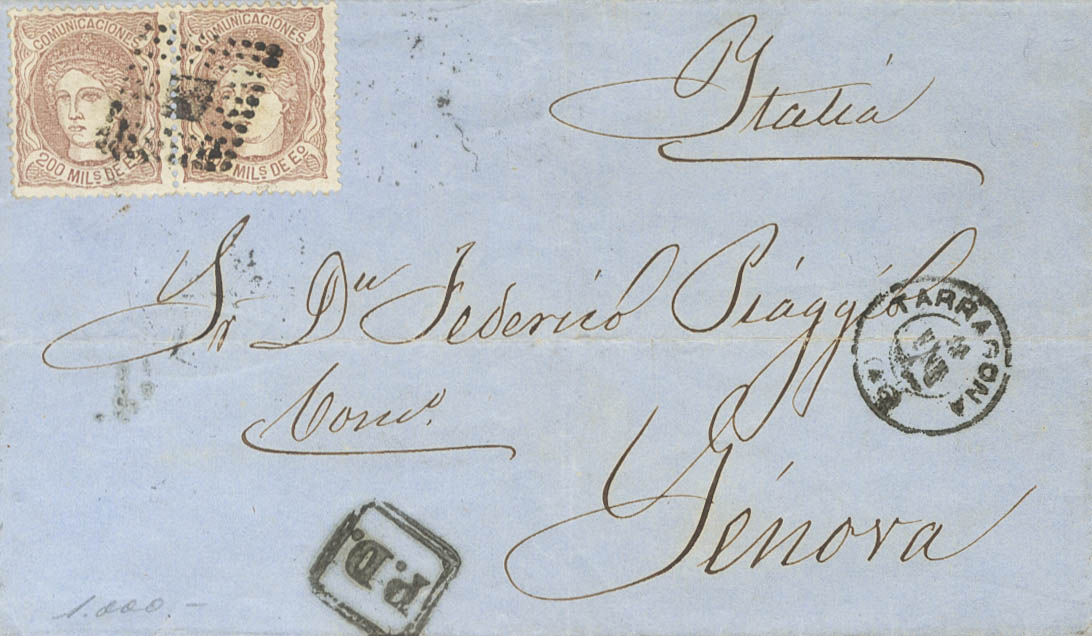 COMUNICACIONES COMUNICACIONES
200 MILS DE Eº MILS DE Eº
Italia
Sr Dn Federico Piaggio
TARRAGONA
Génova
P.D.
1.000.-